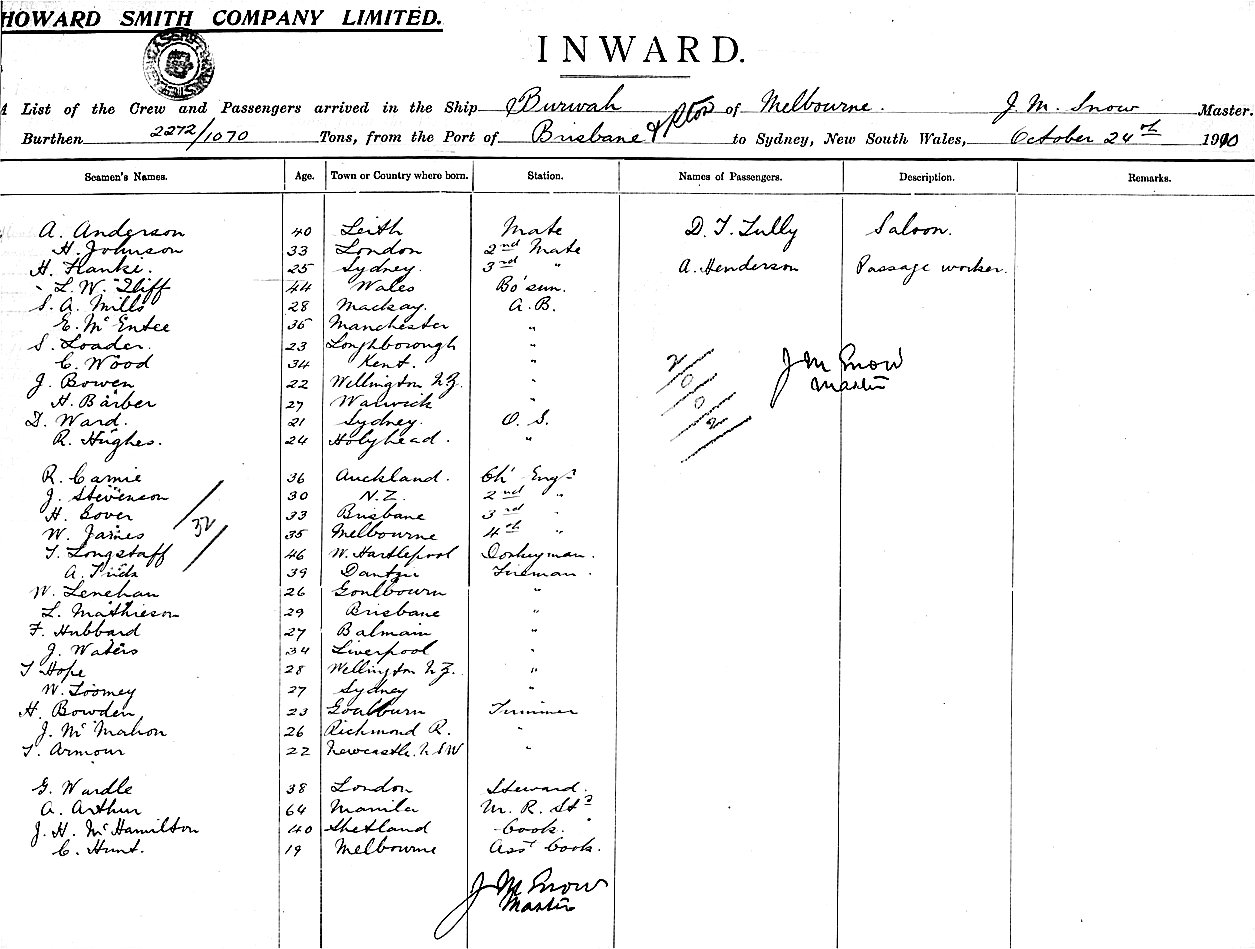 HOWARD SMITH COMPANY LIMITED.
INWARD.
A List of the Crew and Passengers arrived in the Ship Burwah of Melbourne. J. M. Snow Master.
Burthen 2272/1070 Tons, from the Port of Brisbane & to Sydney, New South Wales, October 24th 1910
Seamen's Names. Age. Town or Country where born. Station. Names of Passengers. Description. Remarks.
A. Anderson 40 Leith Mate D. T. Tully Saloon.
H. Johnson 33 London 2nd Mate
H. Hanke. 25 Sydney. 3rd " A. Henderson Passage worker.
L. W. Iliff 44 Wales Bo'sun.
S. A. Mills 28 Mackay. A. B.
E. McEntee 36 Manchester "
S. Loader. 23 Loughborough "
C. Wood 34 Kent. "
J. Bowen 22 Wellington N.Z. "
H. Barber 27 Warwick "
D. Ward. 21 Sydney. O. S.
R. Hughes. 24 Holyhead. "
J M Snow
Master
2/0/0/2
R. Carnie 36 Auckland. Ch' Engr
J. Stevenson 30 N.Z. 2nd "
H. Gover 33 Brisbane 3rd "
W. James 35 Melbourne 4th "
32
T. Longstaff 46 W. Hartlepool Donkeyman.
A. 39 Fireman.
W. Lenehan 26 Goulbourn "
L. Mathieson 29 Brisbane "
F. Hubbard 27 Balmain "
J. Waters 34 Liverpool "
T Hope 28 Wellington N.Z. "
W. Toomey 27 Sydney "
H. Bowden 23 Goulburn Trimmer
J. McMahon 26 Richmond R. "
T. Armour 22 Newcastle. N.S.W "
G. Wardle 38 London Steward.
A. Arthur 64 Manila M. R. Std
J. H. McHamilton 40 Shetland Cook.
C. Hunt. 19 Melbourne Asst Cook.
J M Snow
Master